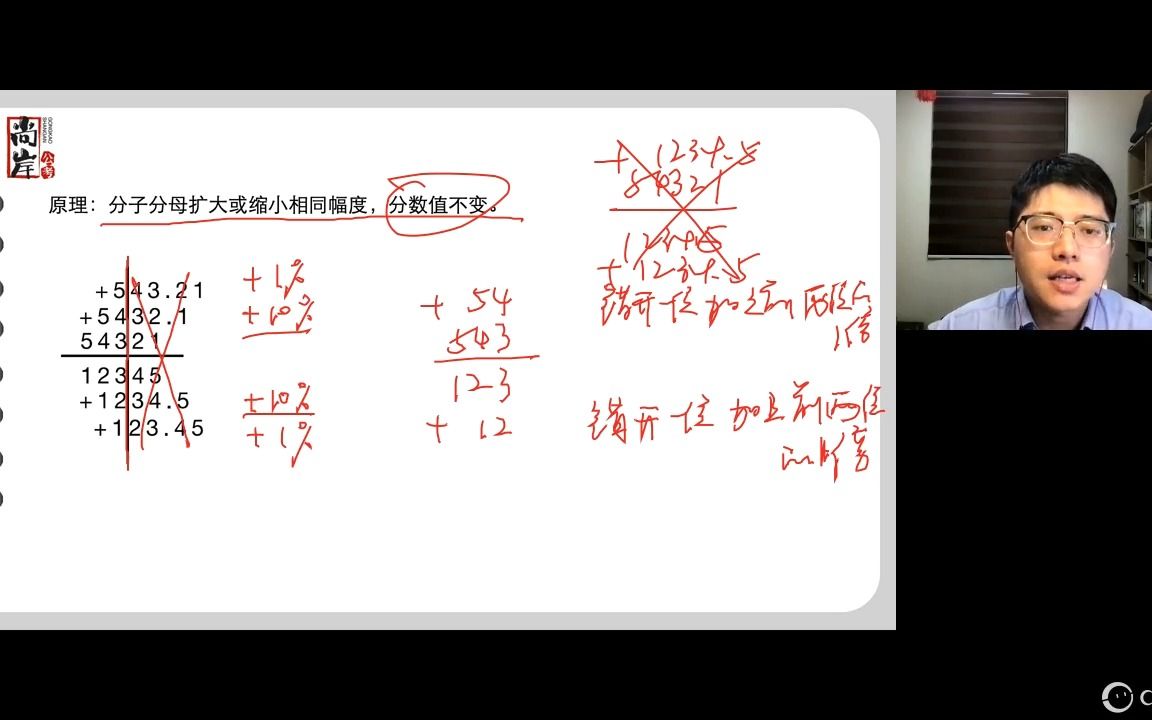 尚岸
公考
GONGKAO
SHANGAN
原理：分子分母扩大或缩小相同幅度，分数值不变。
+543.21
+5432.1
54321
12345
+1234.5
+123.45
+1%
+10%
+10%
+1%
+ 54
543
123
+ 12
+ 1234.5
54321
12345
+ 1234.5
错开一位 加之前 两位的
1倍
错开一位 加上前两位
的1倍
C